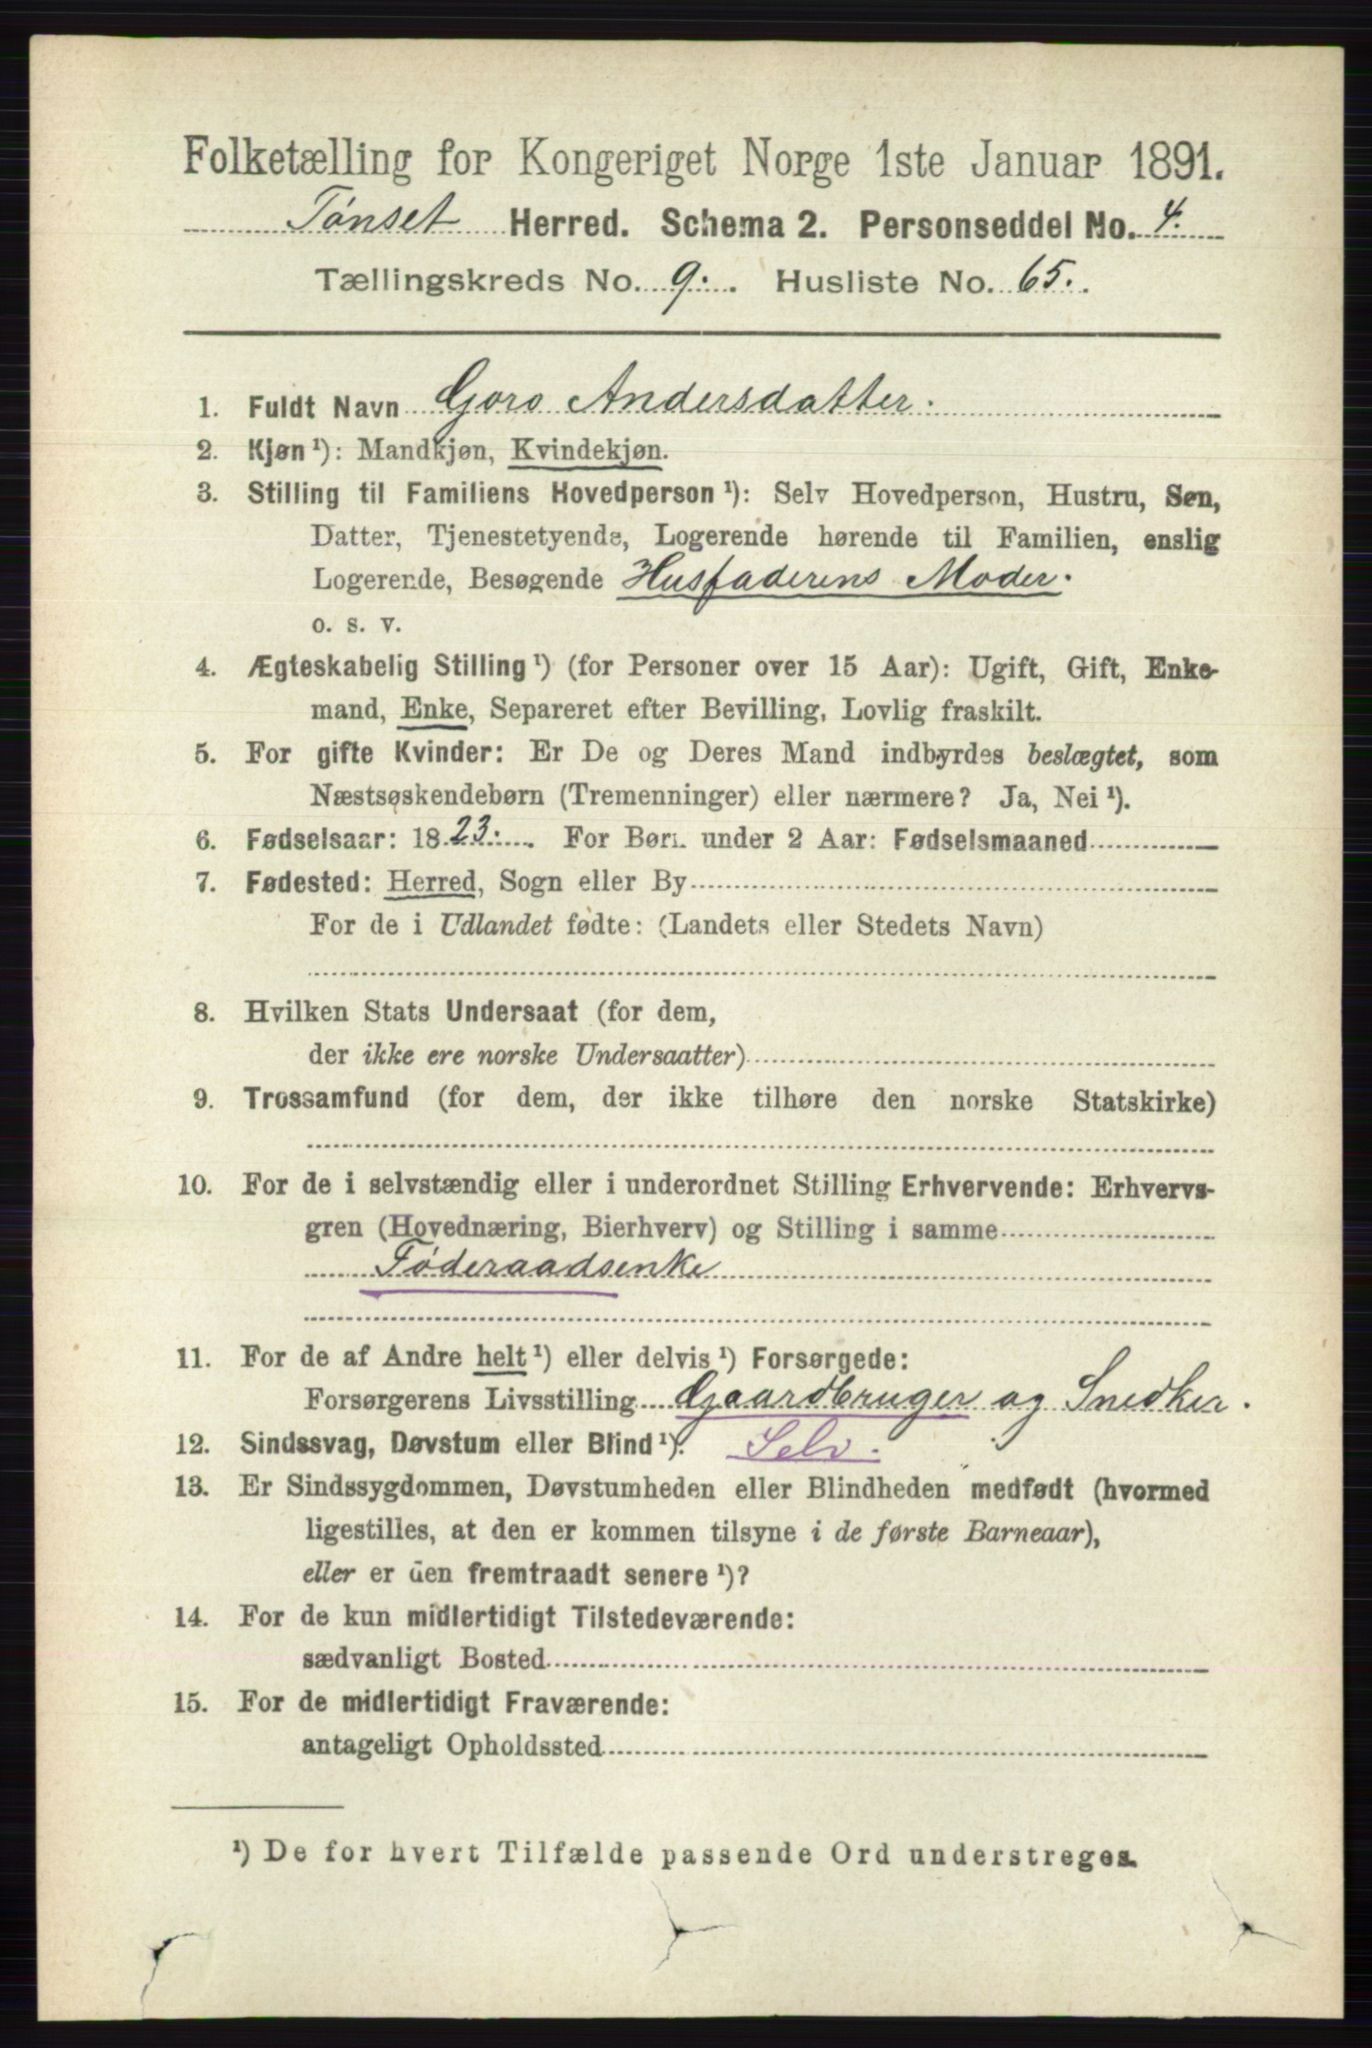 Folketælling for Kongeriget Norge 1ste Januar 1891.
Tønset Herred. Schema 2. Personseddel No. 4.
Tællingskreds No. 9. Husliste No. 65.
1. Fuldt Navn Goro Andersdatter.
2. Kjøn¹): Mandkjøn, Kvindekjøn.
3. Stilling til Familiens Hovedperson¹): Selv Hovedperson, Hustru, Søn,
Datter, Tjenestetyende, Logerende hørende til Familien, enslig
Logerende, Besøgende Husfaderens Moder.
o. s. v.
4. Ægteskabelig Stilling¹) (for Personer over 15 Aar): Ugift, Gift, Enke-
mand, Enke, Separeret efter Bevilling, Lovlig fraskilt.
5. For gifte Kvinder: Er De og Deres Mand indbyrdes beslægtet, som
Næstsøskendebørn (Tremenninger) eller nærmere? Ja, Nei¹).
6. Fødselsaar: 1823. For Børn under 2 Aar: Fødselsmaaned
7. Fødested: Herred, Sogn eller By
For de i Udlandet fødte: (Landets eller Stedets Navn)
8. Hvilken Stats Undersaat (for dem,
der ikke ere norske Undersaatter)
9. Trossamfund (for dem, der ikke tilhøre den norske Statskirke)
10. For de i selvstændig eller i underordnet Stilling Erhvervende: Erhvervs-
gren (Hovednæring, Bierhverv) og Stilling i samme
Føderaadsenke
11. For de af Andre helt¹) eller delvis¹) Forsørgede:
Forsørgerens Livsstilling Gaardbruger og Snedker.
12. Sindssvag, Døvstum eller Blind¹). Selv.
13. Er Sindssygdommen, Døvstumheden eller Blindheden medfødt (hvormed
ligestilles, at den er kommen tilsyne i de første Barneaar),
eller er den fremtraadt senere¹)?
14. For de kun midlertidigt Tilstedeværende:
sædvanligt Bosted
15. For de midlertidigt Fraværende:
antageligt Opholdssted
¹) De for hvert Tilfælde passende Ord understreges.